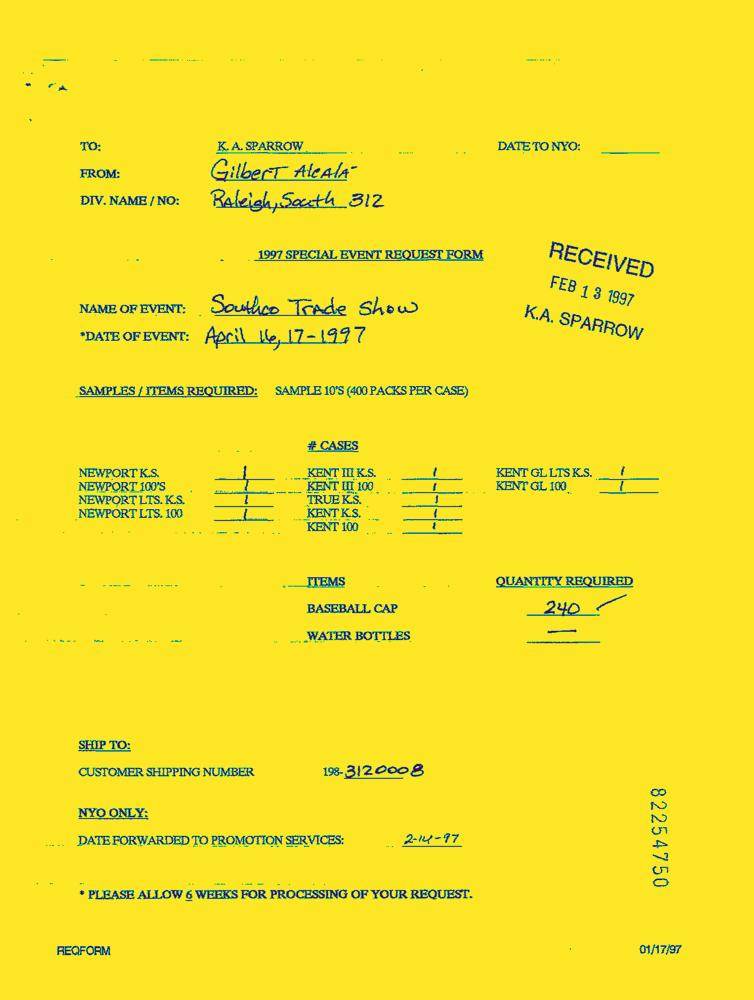 TO: K. A. SPARROW DATE TO NYO:
FROM: Gilbert Alcala
DIV. NAME / NO: Raleigh, South 312
1997 SPECIAL EVENT REQUEST FORM
RECEIVED
FEB 13 1997
K.A. SPARROW
NAME OF EVENT: Southco Trade Show
*DATE OF EVENT: April 16, 17-1997
SAMPLES / ITEMS REQUIRED: SAMPLE 10'S (400 PACKS PER CASE)
# CASES
NEWPORT K.S. 1 KENT III K.S. 1 KENT GL LTS K.S. 1
NEWPORT 100'S 1 KENT III 100 1 KENT GL 100 1
NEWPORT LTS. K.S. 1 TRUE K.S. 1
NEWPORT LTS. 100 1 KENT K.S. 1
KENT 100 1
ITEMS QUANTITY REQUIRED
BASEBALL CAP 240 ✓
WATER BOTTLES —
SHIP TO:
CUSTOMER SHIPPING NUMBER 198-3120008
NYO ONLY:
DATE FORWARDED TO PROMOTION SERVICES: 2-14-97
* PLEASE ALLOW 6 WEEKS FOR PROCESSING OF YOUR REQUEST.
82254750
REQFORM 01/17/97